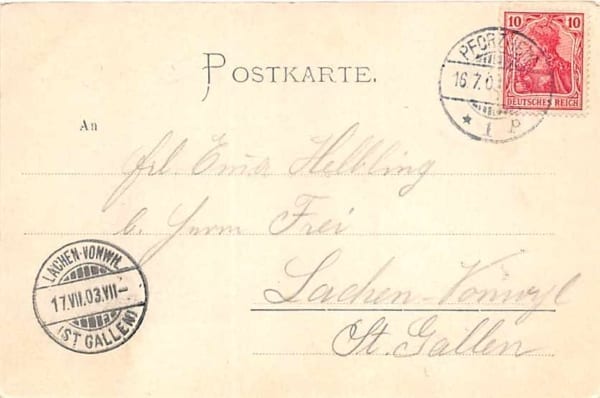 10 10
DEUTSCHES REICH
PFORZHEIM
16.7.03
* 1 P
POSTKARTE.
An
Frl. Ema Helbling
b. Herrn Frei
Lachen-Vonwyl
St. Gallen
LACHEN-VONWIL
17.VII.03.VII-
(ST GALLEN)